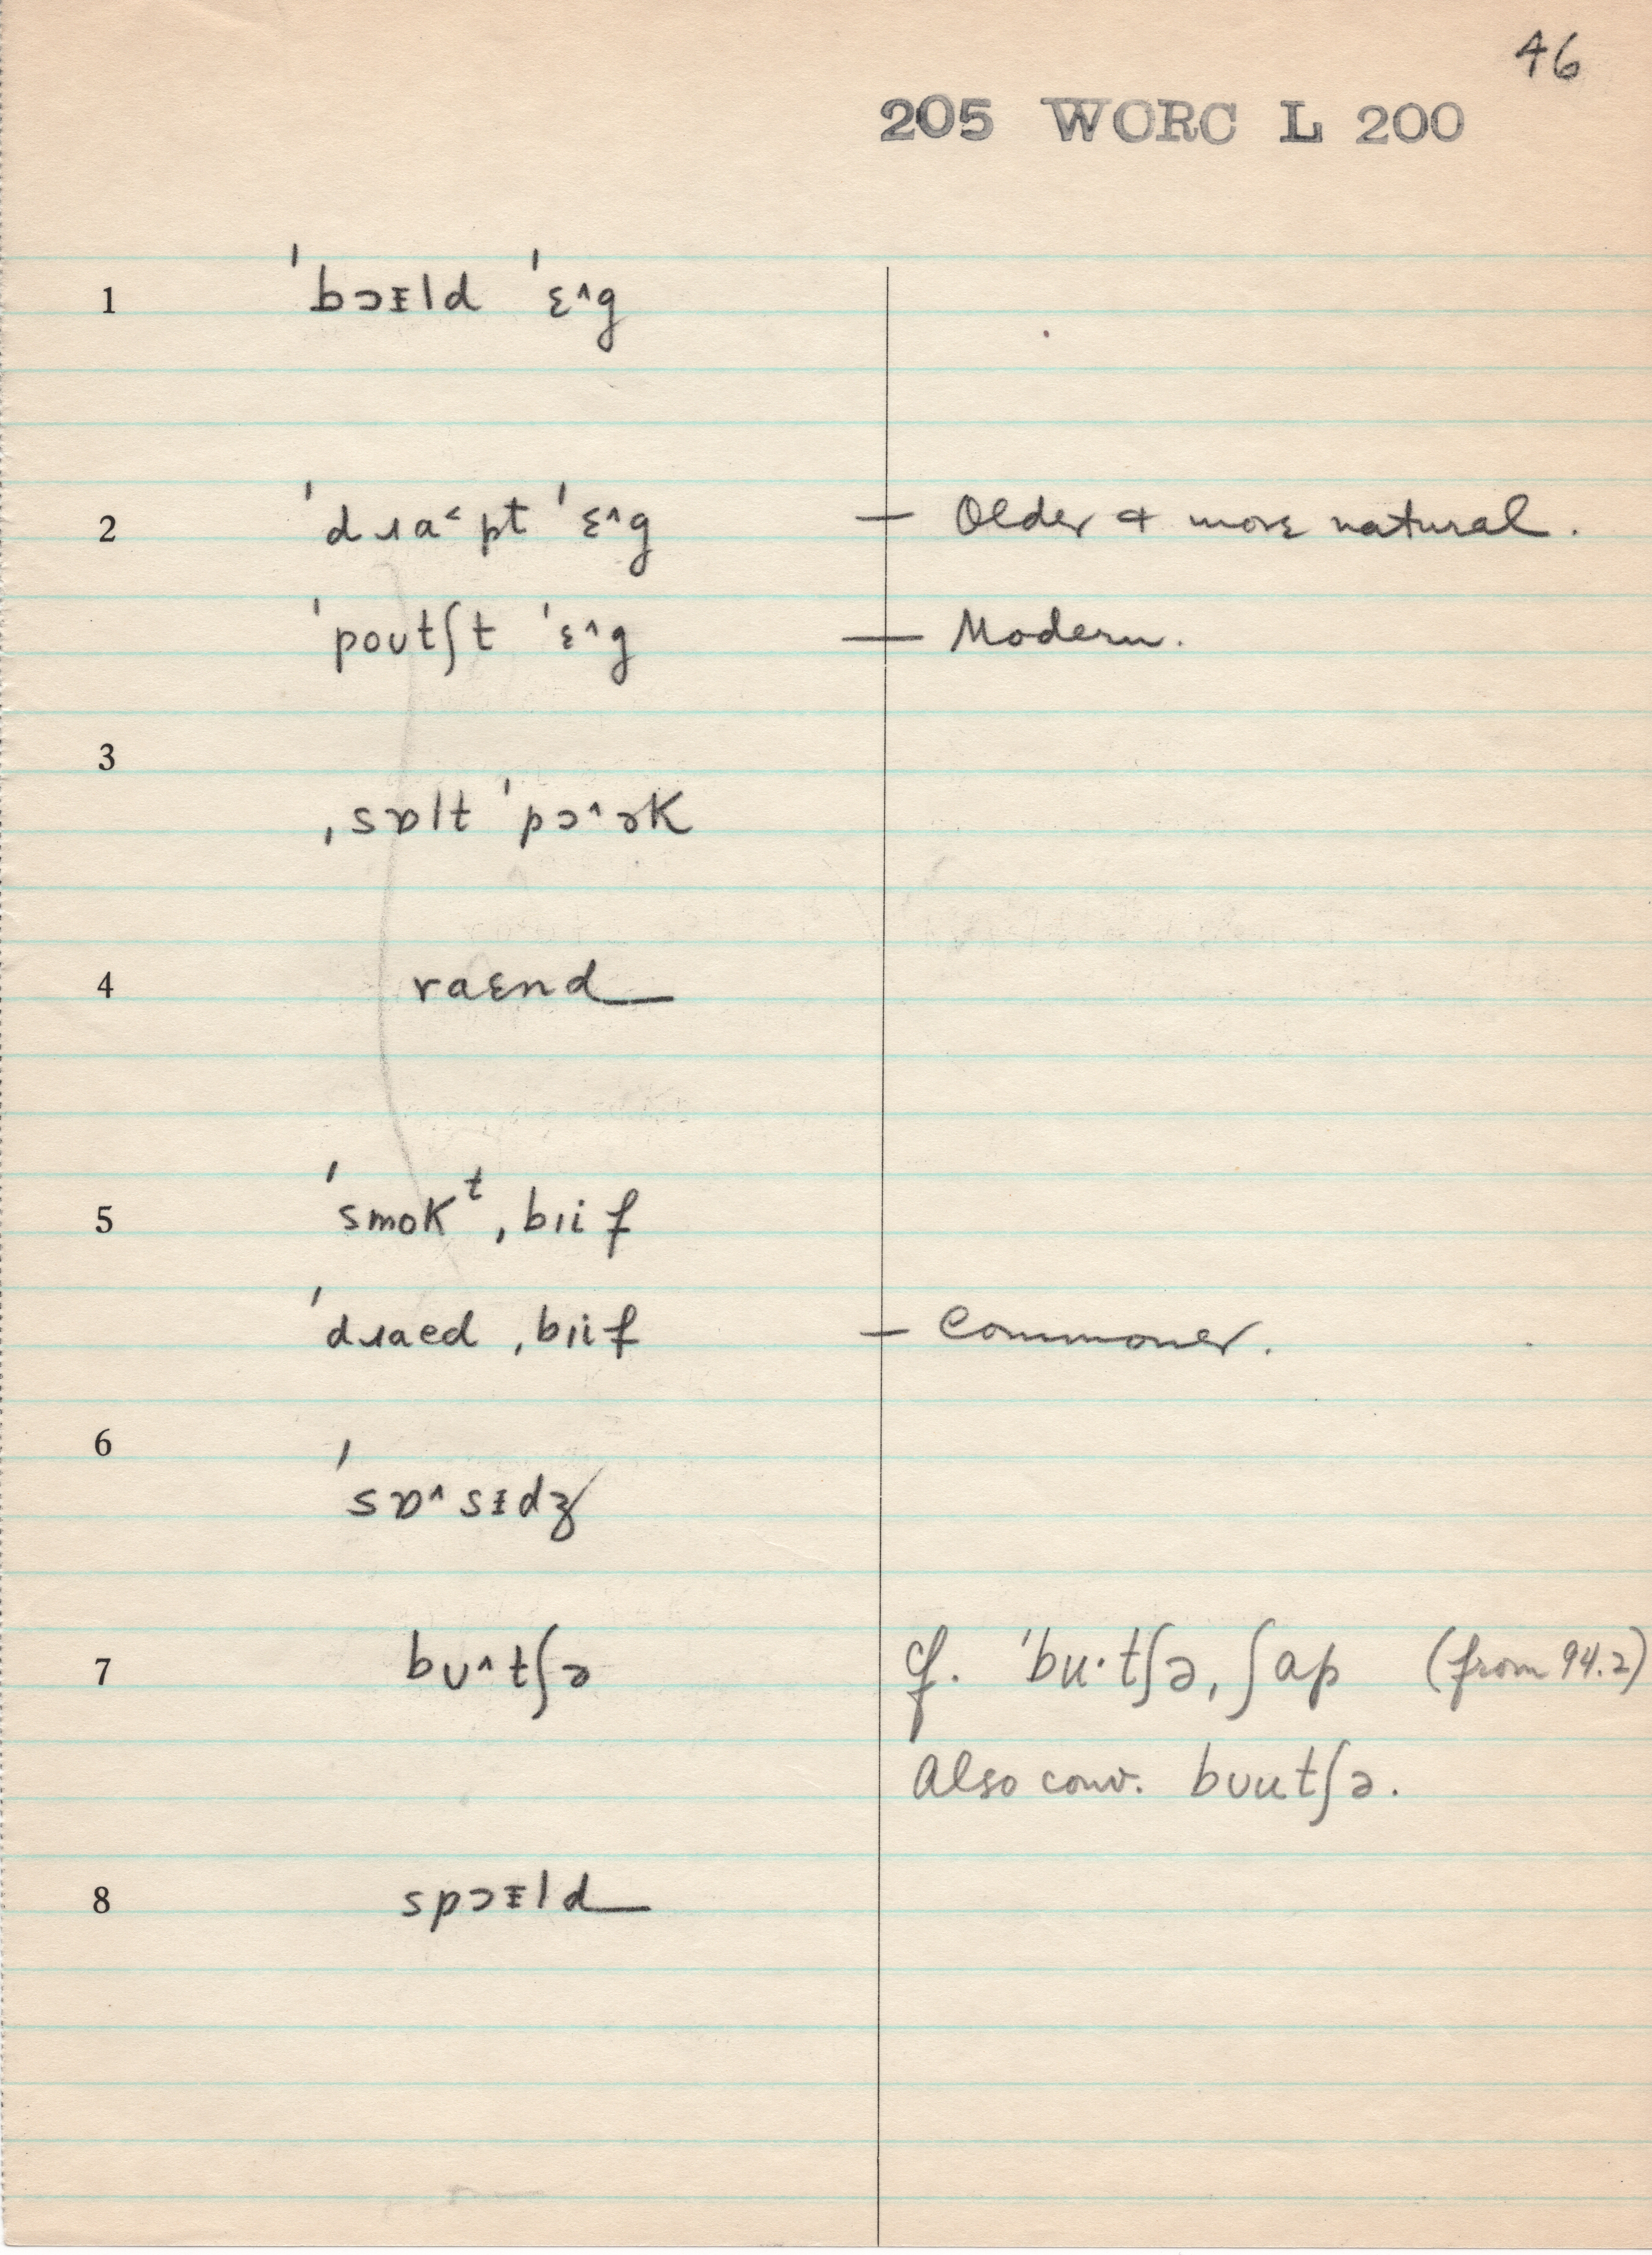 46
205 WORC L 200
1 ˈbɔɪld ˈɛ^g
2 ˈdɹa˂pt ˈɛ^g — Older & more natural.
ˈpoutʃt ˈɛ^g — Modern.
3
ˌsɒlt ˈpɔ^ək
4 raɛnd
5 ˈsmokᵗ ˌbɪif
ˈdɹaed ˌbɪif — Commoner.
6
ˈsɒ^sɪdʒ
7 bʊ^tʃə cf. ˈbu·tʃə ˌʃap (from 94.2)
Also conv. bʊutʃə.
8 spɔɪld